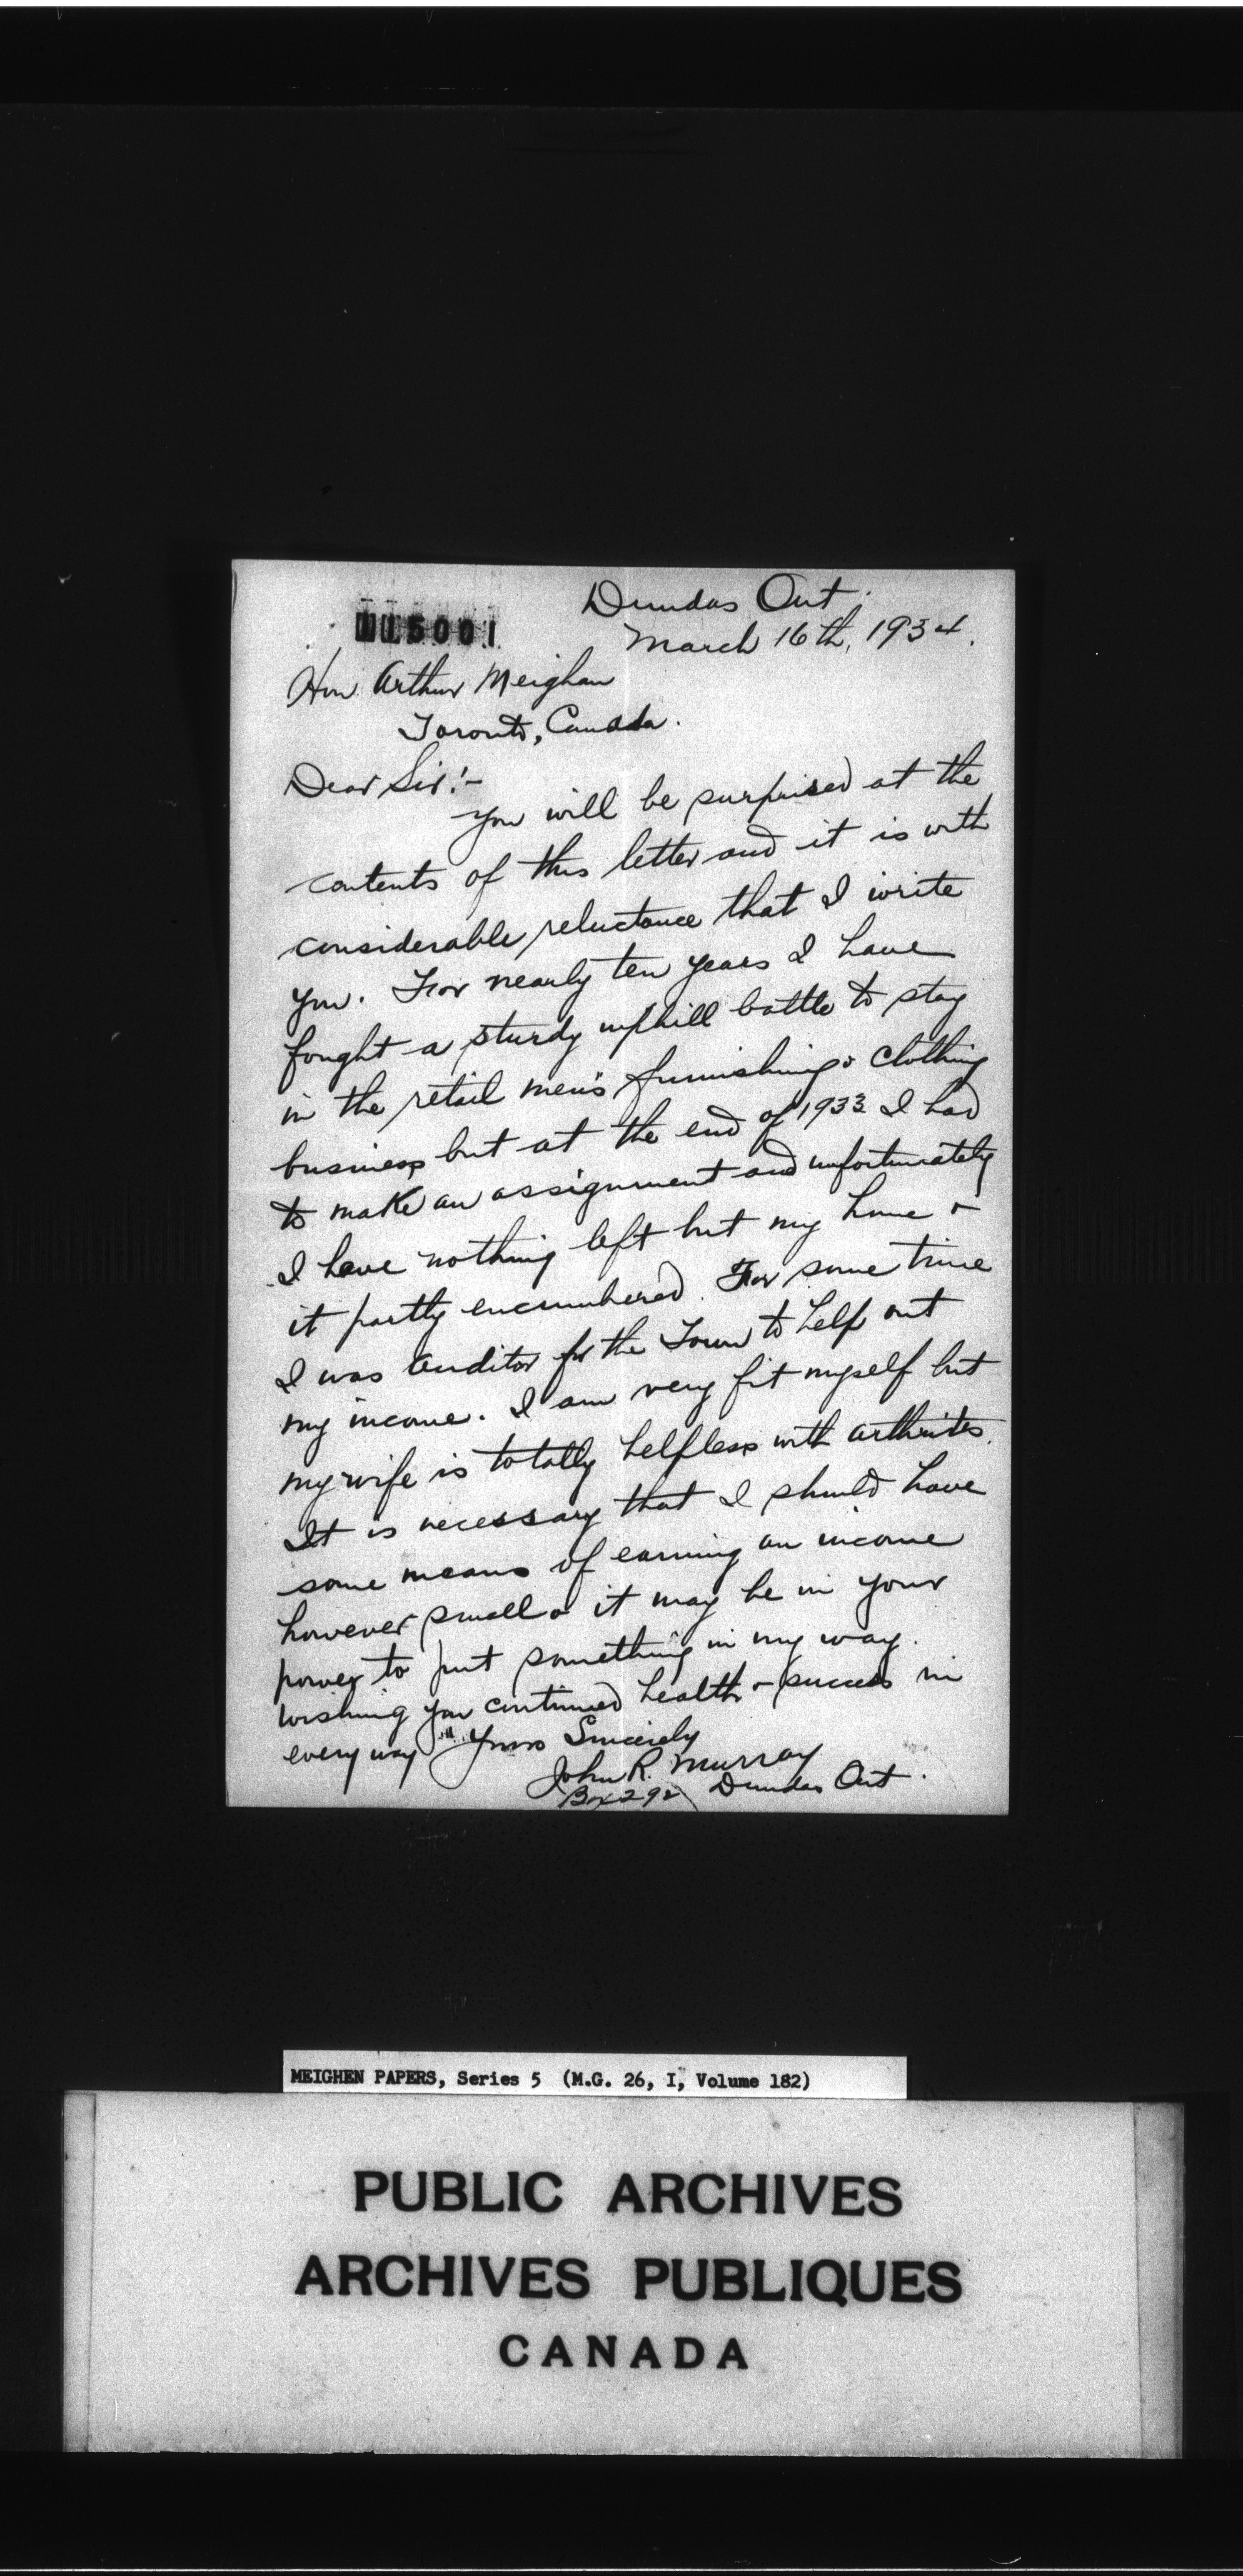 Dundas Ont.
115001
March 16th, 1934.
Hon. Arthur Meighan
Toronto, Canada.
Dear Sir:-
You will be surprised at the
contents of this letter and it is with
considerable reluctance that I write
you. For nearly ten years I have
fought a sturdy uphill battle to stay
in the retail men's furnishing & clothing
business but at the end of 1933 I had
to make an assignment and unfortunately
I have nothing left but my home &
it partly encumbered. For some time
I was Auditor for the Town to help out
my income. I am very fit myself but
my wife is totally helpless with arthrites.
It is necessary that I should have
some means of earning an income
however small & it may be in your
power to put something in my way.
Wishing you continued health & success in
every way Yours Sincerely
John R. Murray
Box 292 Dundas Ont.
MEIGHEN PAPERS, Series 5 (M.G. 26, I, Volume 182)
PUBLIC ARCHIVES
ARCHIVES PUBLIQUES
CANADA